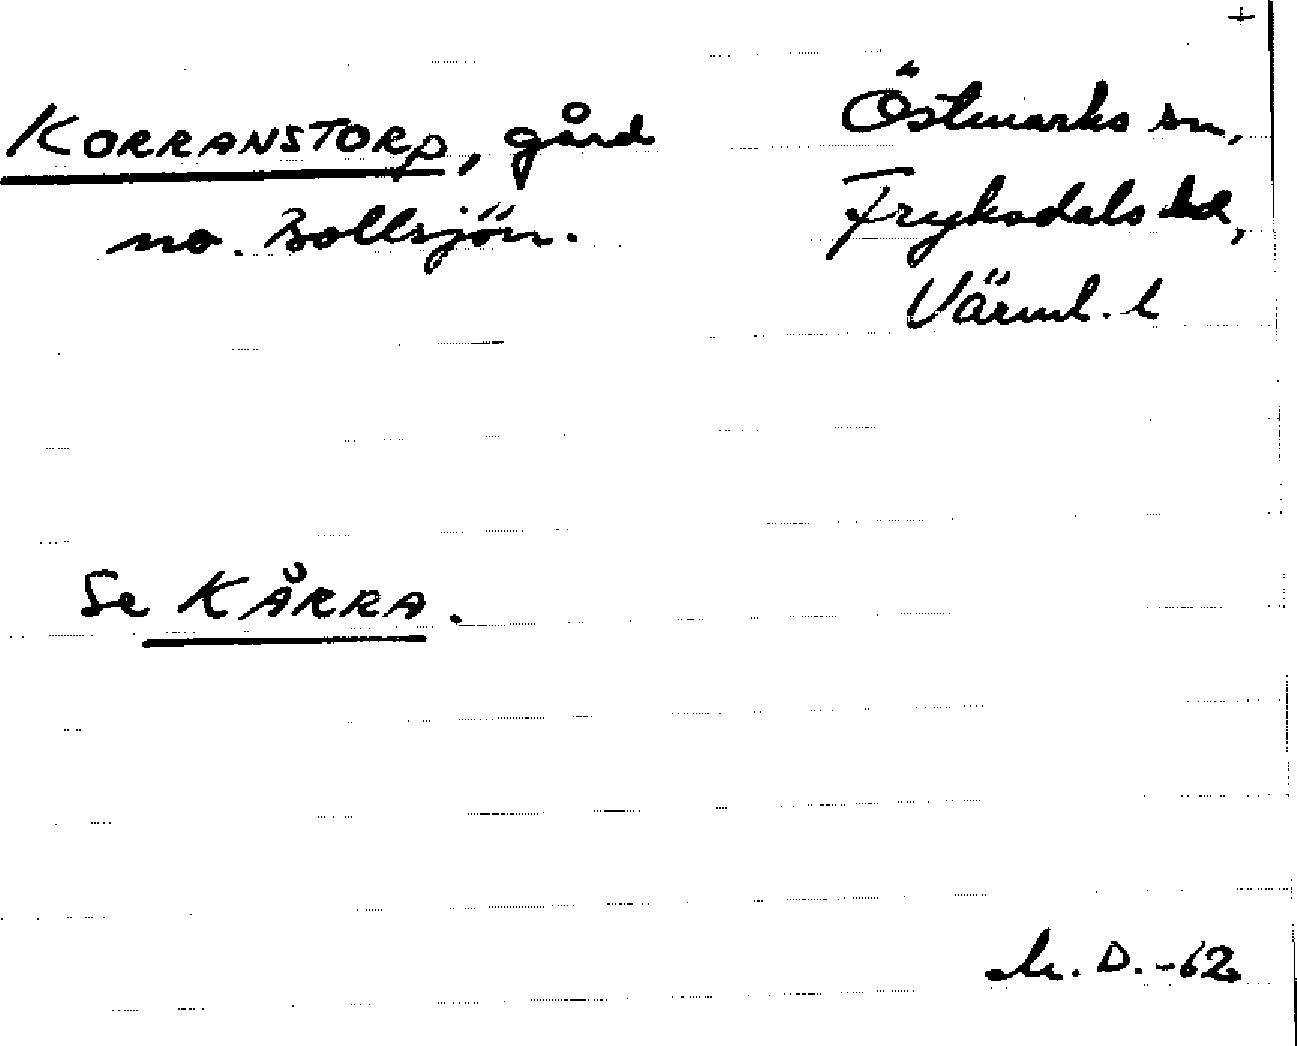 +
KORRANSTORP, gård
no. Bollsjön.
Östmarks sn,
Fryksdals hd,
Värml. l
Se KÅRRA.
M. D. -62